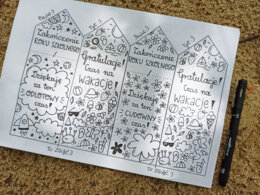 Zakończenie
ROKU SZKOLNEGO
Dziękuję
za ten
ODLOTOWY
czas!
Gratulacje!
Czas na
WAKACJE!
Zakończenie
ROKU SZKOLNEGO
Dziękuję
za ten
CUDOWNY
Gratulacje!
Czas na
WAKACJE!